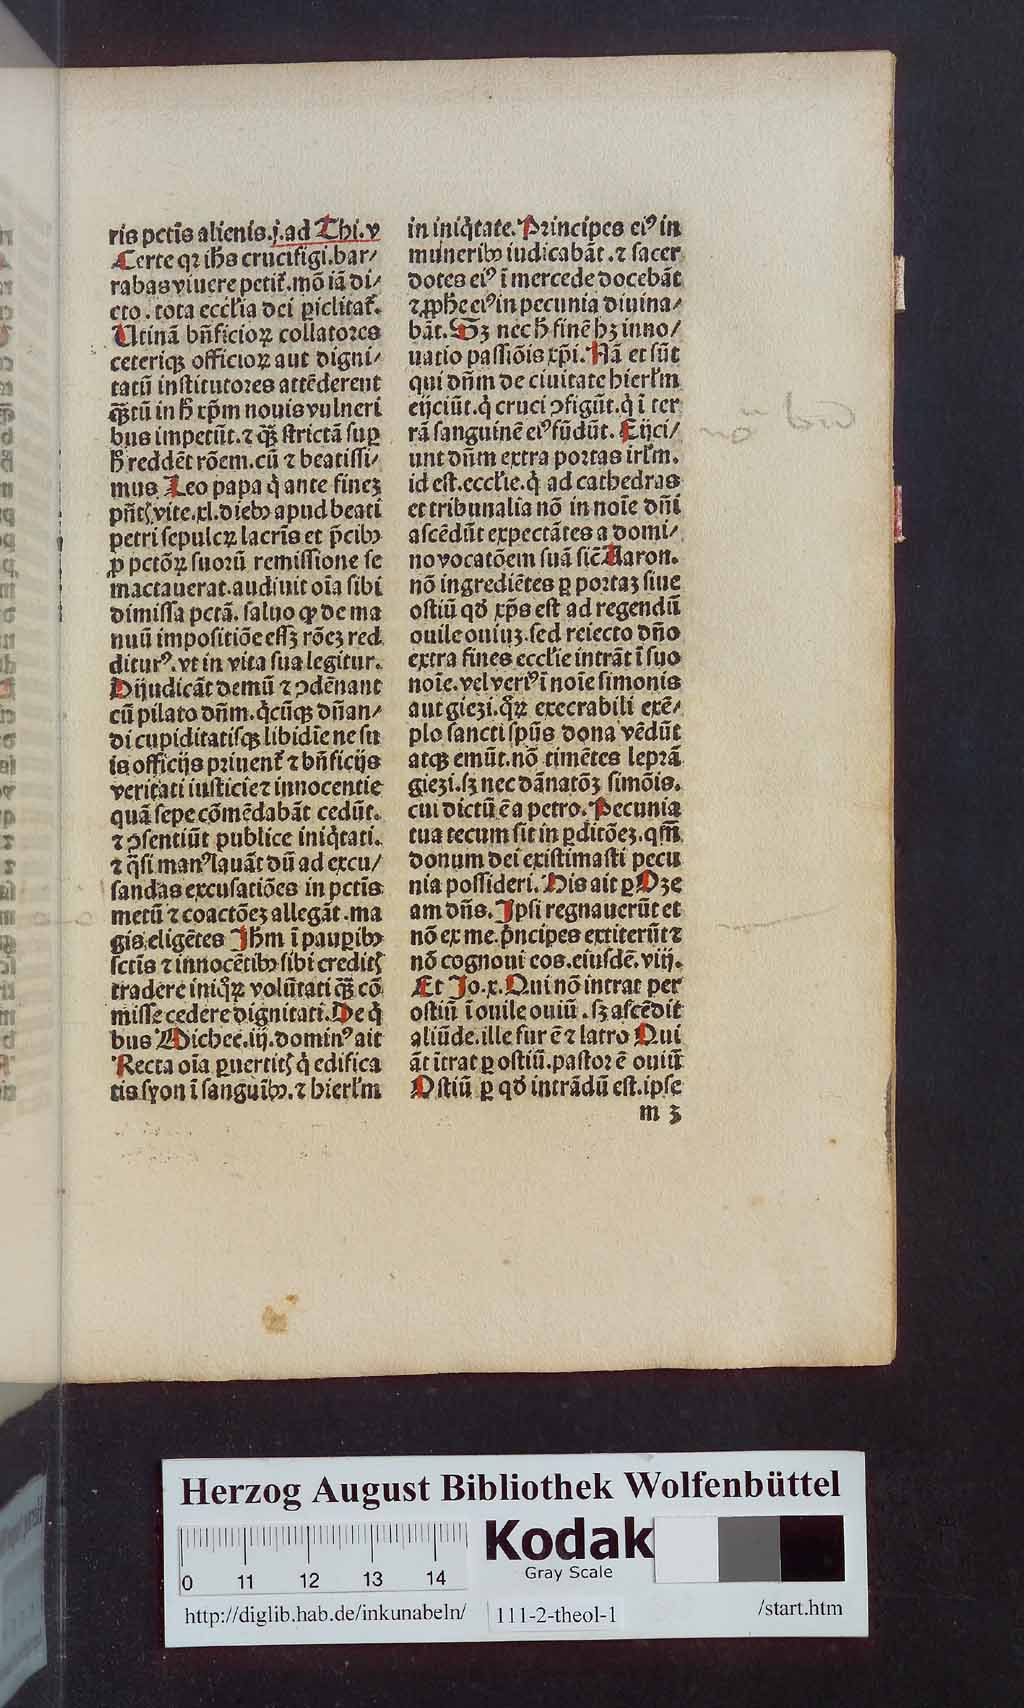 ris pctīs alienis.j.ad Thi.v
Certe qꝛ ihs crucifigi.bar/
rabas viuere petit᷑.mō iā di/
cto. tota eccl'ia dei ꝑiclitat᷑.
Utinā bn̄ficioꝝ collatores
ceteriqꝫ officioꝝ aut digni/
tatū institutores attēderent
qͣꝫtū in h̄ xp̄m nouis vulneri
bus impetūt.⁊ qͣꝫ strictā suꝑ
h̄ reddēt rōem.cū ⁊ beatissi/
mus Leo papa q̇ ante fineꝫ
pn̄tꝭ vite.xl.diebꝰ apud beati
petri sepulcꝝ lacrīs et p̄cibꝰ
ꝓ pctōꝝ suorū remissione se
mactauerat.audiuit oīa sibi
dimissa pctā. saluo qꝙ de ma
nuū impositiōe eſſꝫ rōeꝫ red
diturꝰ.vt in vita sua legitur.
Dijudicāt demū ⁊ ꝯdēnant
cū pilato dn̄m.q̇cūqꝫ dn̄an/
di cupiditatisqꝫ libidīe ne su
is officijs priuent᷑ ⁊ bn̄ficijs
veritati iusticie ⁊ innocentie
quā sepe cōmēdabāt cedūt.
⁊ ꝯsentiūt publice iniq̇tati.
⁊ qͣsi manꝰ lauāt dū ad excu/
sandas excusatiōes in pctīs
metū ⁊ coactōeꝫ allegāt.ma
gis eligētes Jhm ī pauꝑibꝰ
sctīs ⁊ innocētibꝰ sibi creditꝭ
tradere iniqͦꝝ volūtati qͣꝫ cō
misse cedere dignitati.De q̇
bus Michee.iij.dominꝰ ait
Recta oīa ꝑuertitꝭ q̇ edifica
tis syon ī sanguībꝰ.⁊ hierl'm
in iniq̇tate. Principes eiꝰ in
muneribꝰ iudicabāt.⁊ sacer
dotes eiꝰ ī mercede docebāt
⁊ ꝓphe eiꝰ in pecunia diuina/
bāt. Sꝫ nec h̄ finē hꝫ inno/
uatio passiōis xp̄i. Nā et sūt
qui dn̄m de ciuitate hierl'm
eijciūt.q̇ cruci ꝯfigūt.q̇ ī ter
rā sanguinē eiꝰ fūdūt. Eijci/
unt dn̄m extra portas irl'm.
id est.eccl'ie.q̇ ad cathedras
et tribunalia nō in noīe dn̄i
ascēdūt expectātes a domi/
no vocatōem suā sic̄ Aaron.
nō ingrediētes ꝑ portaꝫ siue
ostiū qd̓ xp̄s est ad regendū
ouile ouiuꝫ.sed reiecto dn̄o
extra fines eccl'ie intrāt ī suo
noīe.vel veriꝰ ī noīe simonis
aut giezi.qͦꝝ execrabili exē/
plo sancti spūs dona vēdūt
atqꝫ emūt.nō timētes leprā
giezi.sꝫ nec dānatōꝫ simōis.
cui dictū ē a petro. Pecunia
tua tecum sit in ꝑditōeꝫ.qm̄
donum dei existimasti pecu
nia possideri. His ait ꝑ Oze
am dn̄s. Ipsi regnauerūt et
nō ex me.p̄ncipes extiterūt ⁊
nō cognoui eos.eiusdē.viij.
Et Jo.x. Qui nō intrat per
ostiū ī ouile ouiū.sꝫ ascēdit
aliūde.ille fur ē ⁊ latro Qui
āt ītrat ꝑ ostiū.pastor ē ouiū
Ostiū ꝑ qd̓ intrādū est.ipse
m 3
Herzog August Bibliothek Wolfenbüttel
Kodak
Gray Scale
0 11 12 13 14
http://diglib.hab.de/inkunabeln/
111-2-theol-1
/start.htm